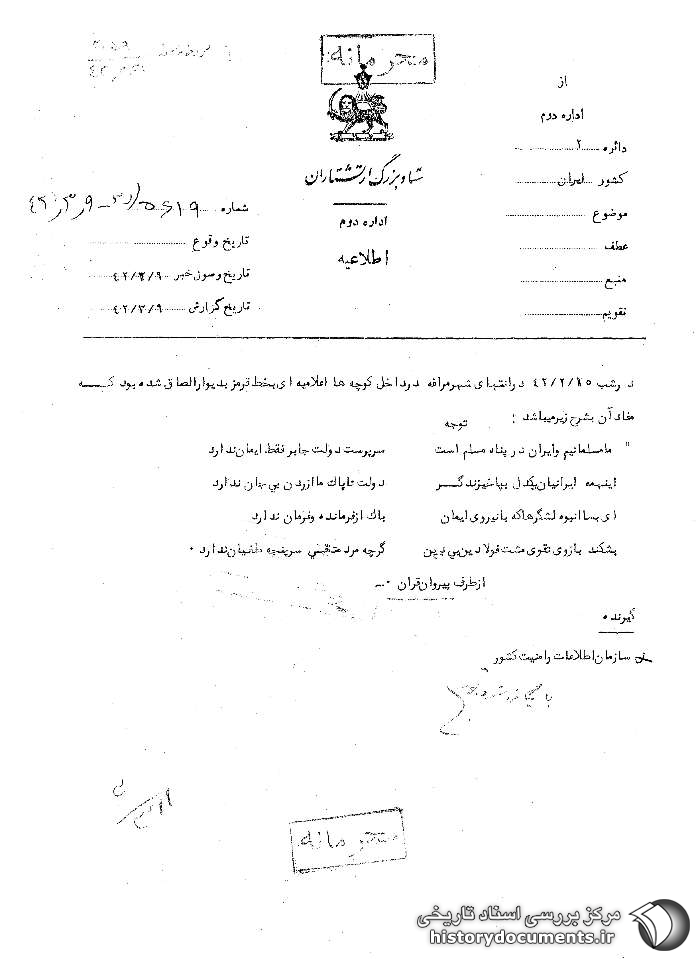 محرمانه
از
اداره دوم
دائره ۲
کشور ایران
موضوع
عطف
منبع
تقویم
ستاد بزرگ ارتشتاران
اداره دوم
اطلاعیه
شماره
تاریخ وقوع
تاریخ وصول خبر ۴۲/۳/۹
تاریخ گزارش ۴۲/۳/۹
در شب ۴۲/۲/۲۵ در انتهای شهر مراغه در داخل کوچه ها اعلامیه ای بخط قرمز بدیوار الصاق شده بود کـــه
مفاد آن بشرح زیر میباشد :
توجه
" ما مسلمانیم و ایران در پناه مسلم است سرپرست دولت جابر فقط ایمان ندارد
اینهمه ایرانیان یکدل بپا خیزند گـــر دولت ناپاک ما از ردن بی جان ندارد
ای بسا انبوه لشگرها که با نیروی ایمان باک از فرمانده و فرمان ندارد
بشکند بازوی تقوی مشت فولادین بی دین گرچه مرد متقی سرپنجه طغیان ندارد .
از طرف پیروان قران . ــ
گیرنده
سازمان اطلاعات و امنیت کشور
محرمانه
مرکز بررسی اسناد تاریخی
historydocuments.ir